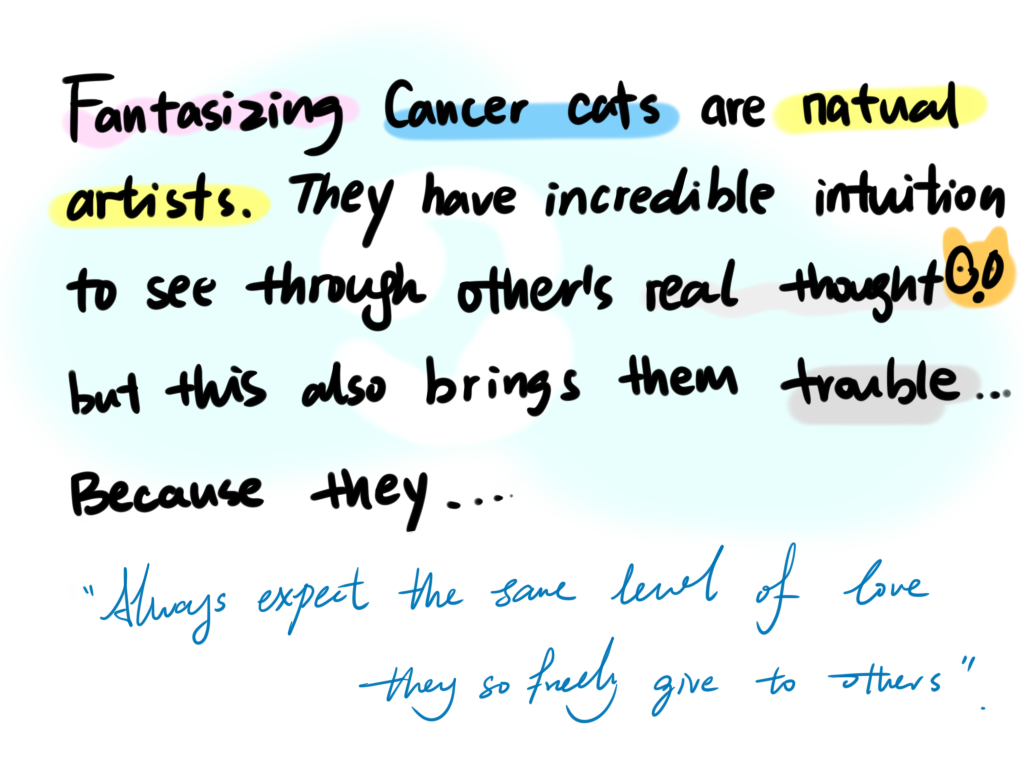 Fantasizing Cancer cats are natual
artists. They have incredible intuition
to see through other's real thought
but this also brings them trouble...
Because they....
"Always expect the same level of love
they so freely give to others".